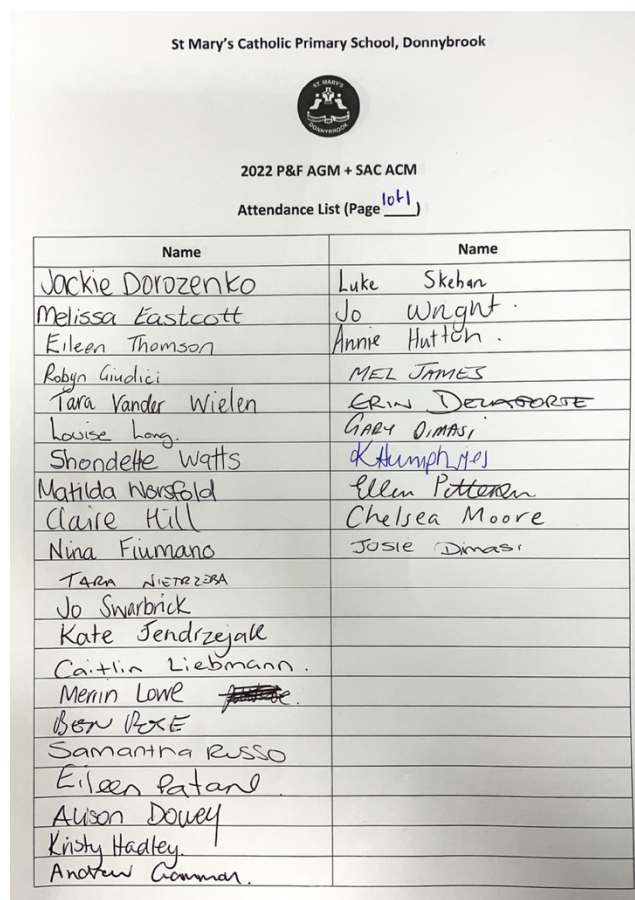 St Mary's Catholic Primary School, Donnybrook
ST. MARY'S
DONNYBROOK
2022 P&F AGM + SAC ACM
Attendance List (Page 1of1)
Name Name
Jackie Dorozenko Luke Skehan
Melissa Eastcott Jo Wright.
Eileen Thomson Annie Hutton.
Robyn Giudici MEL JAMES
Tara Vander Wielen ERIN DELAPORTE
Louise Long. GARY DIMASI
Shondelle Watts K Humphries
Matilda Worsfold Ellen
Claire Hill Chelsea Moore
Nina Fiumano Josie Dimasi
TARA
Jo Swarbrick
Kate
Caitlin Liebmann.
Merrin Lowe
BEN ROSE
Samantha Russo
Eileen Patane
Alison
Kristy Hadley.
Andrew